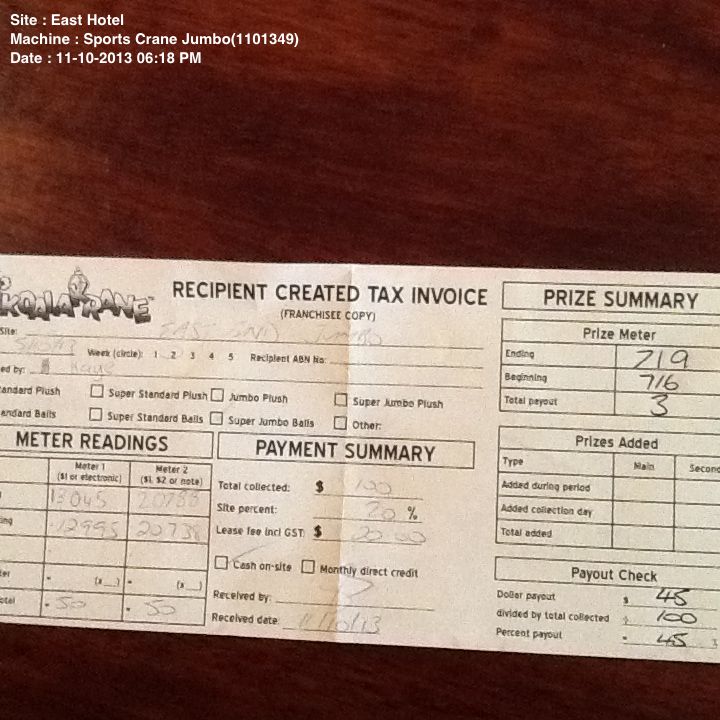 Site : East Hotel
Machine : Sports Crane Jumbo(1101349)
Date : 11-10-2013 06:18 PM
KOALA CRANE
RECIPIENT CREATED TAX INVOICE
(FRANCHISEE COPY)
Site: EAST END JUMBO
Week (circle): 1 2 3 4 5 Recipient ABN No:
ed by: Kaye
andard Plush Super Standard Plush Jumbo Plush Super Jumbo Plush
andard Balls Super Standard Balls Super Jumbo Balls Other:
METER READINGS
Meter 1 Meter 2
($1 or electronic) ($1, $2 or note)
13045 20788
ing 12995 20738
ter (x ) (x )
otal 50 50
PAYMENT SUMMARY
Total collected: $ 100
Site percent: 20 %
Lease fee incl GST: $ 20.00
Cash on-site Monthly direct credit
Received by:
Received date: 11/10/13
PRIZE SUMMARY
Prize Meter
Ending 719
Beginning 716
Total payout 3
Prizes Added
Type Main Second
Added during period
Added collection day
Total added
Payout Check
Dollar payout $ 45
divided by total collected 100
Percent payout 45